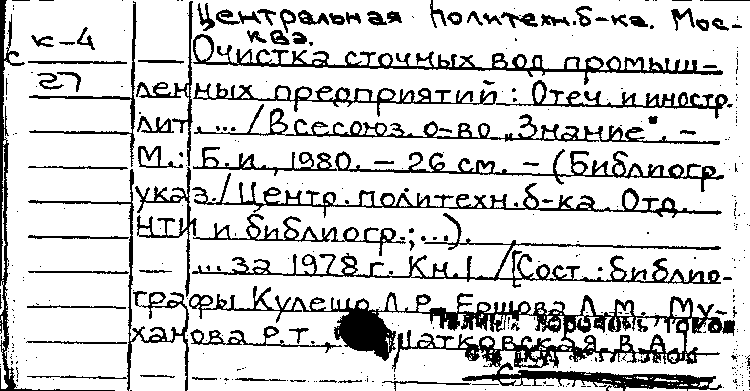 Центральная политехн. б-ка. Мос-
ква.
к-4
Очистка сточных вод промыш-
27
ленных предприятий: Отеч. и иностр.
лит. ... / Всесоюз. о-во „Знание". –
М.: Б. и., 1980. – 26 см. – (Библиогр.
указ. / Центр. политехн. б-ка. Отд.
НТИ и библиогр.; ...).
... за 1978 г. Кн. 1. / [Сост.: библио-
графы Кулешо Л. Р. Ершова Л. М., Му-
ханова Р. Т., Шатковская В. А.]